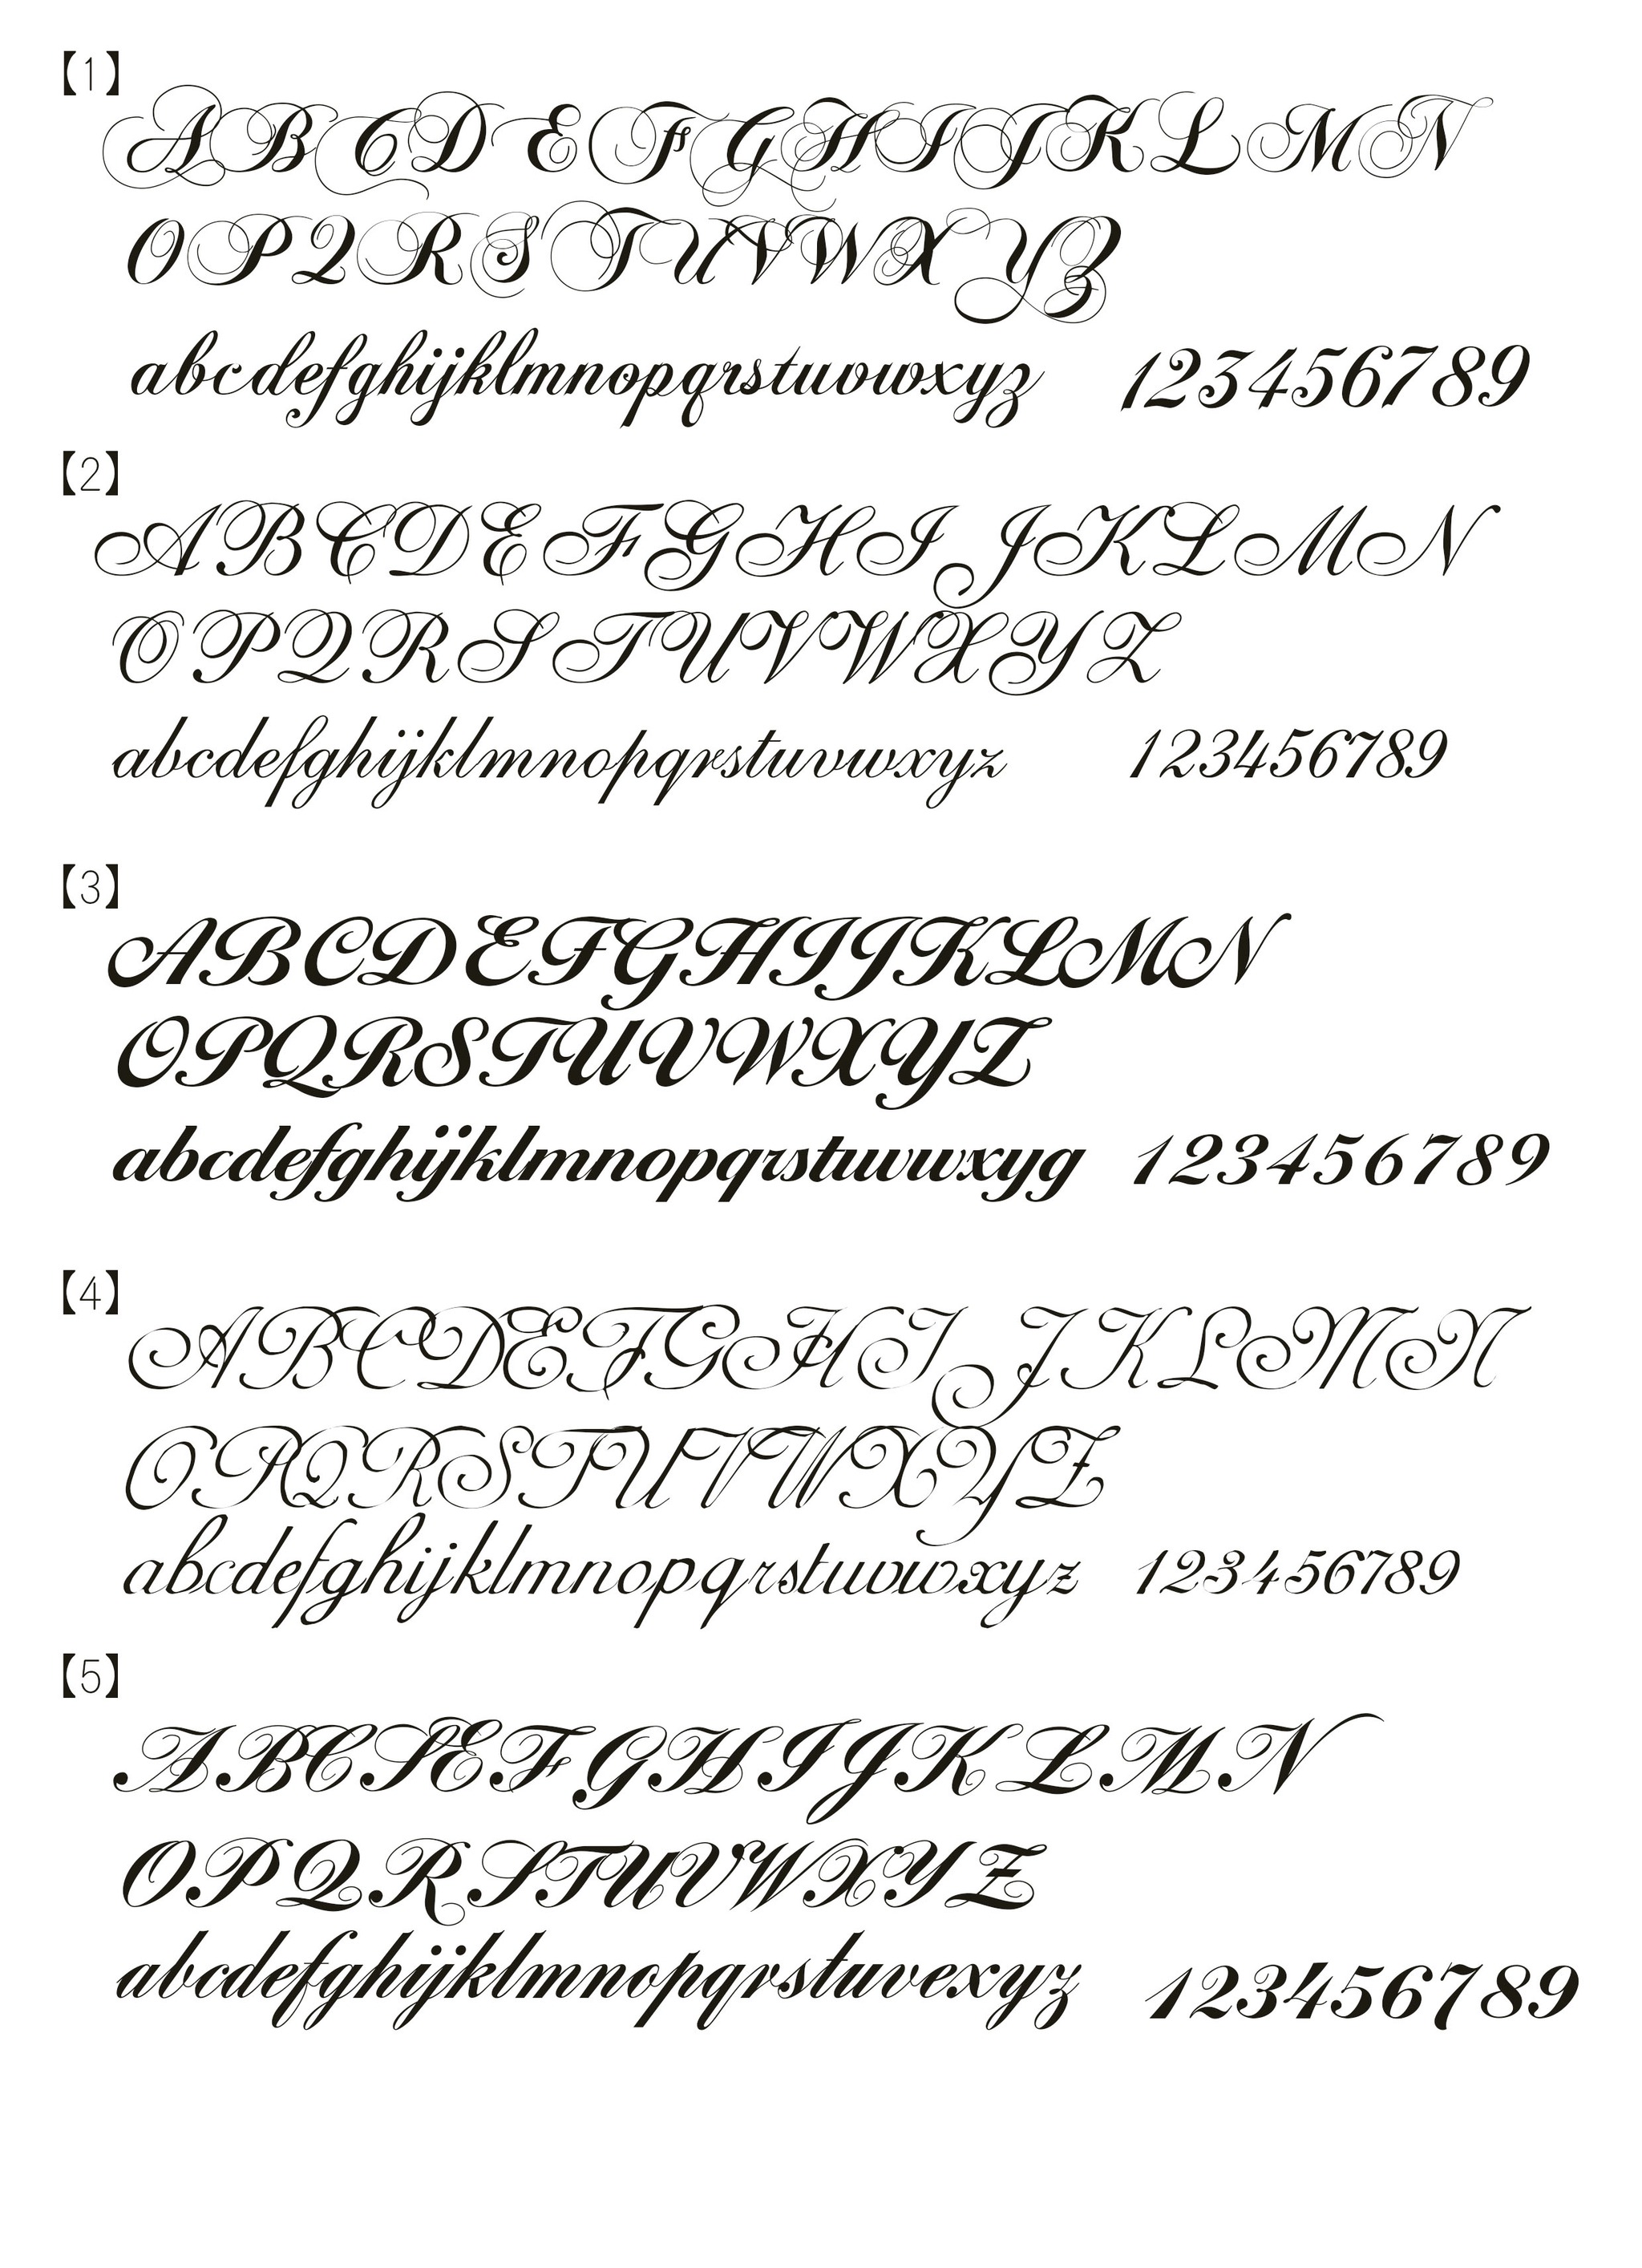 【1】
ABCDEFGHIJKLMN
OPQRSTUVWXYZ
abcdefghijklmnopqrstuvwxyz 123456789
【2】
ABCDEFGHIJKLMN
OPQRSTUVWXYZ
abcdefghijklmnopqrstuvwxyz 123456789
【3】
ABCDEFGHIJKLMN
OPQRSTUVWXYZ
abcdefghijklmnopqrstuvwxyg 123456789
【4】
ABCDEFGHIJKLMN
OPQRSTUVWXYZ
abcdefghijklmnopqrstuvwxyz 123456789
【5】
ABCSEFGHIJKLMN
OPQRSTUVWXYZ
abcdefghijklmnopqrstuvexyz 123456789